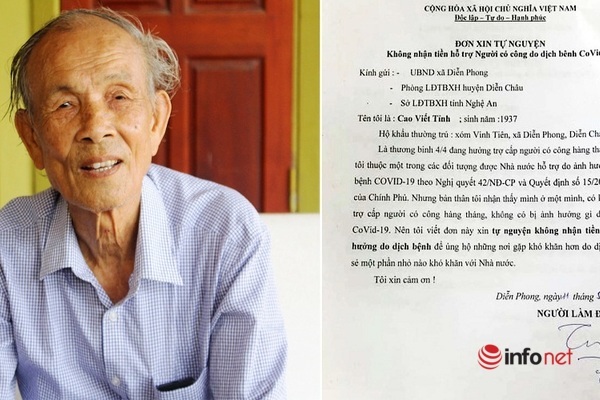 CỘNG HÒA XÃ HỘI CHỦ NGHĨA VIỆT NAM
Độc lập – Tự do – Hạnh phúc
ĐƠN XIN TỰ NGUYỆN
Không nhận tiền hỗ trợ Người có công do dịch bệnh CoVid
Kính gửi : - UBND xã Diễn Phong
- Phòng LĐTBXH huyện Diễn Châu
- Sở LĐTBXH tỉnh Nghệ An
Tên tôi là : Cao Viết Tính ; sinh năm :1937
Hộ khẩu thường trú : xóm Vinh Tiên, xã Diễn Phong, Diễn Châ
Là thương binh 4/4 đang hưởng trợ cấp người có công hàng thá
tôi thuộc một trong các đối tượng được Nhà nước hỗ trợ do ảnh hưở
bệnh COVID-19 theo Nghị quyết 42/NĐ-CP và Quyết định số 15/20
của Chính Phủ. Nhưng bản thân tôi nhận thấy mình ở một mình, có l
trợ cấp người có công hàng tháng, không có bị ảnh hưởng gì d
CoVid-19. Nên tôi viết đơn này xin tự nguyện không nhận tiền
hưởng do dịch bệnh để ủng hộ những nơi gặp khó khăn hơn do dị
sẻ một phần nhỏ nào khó khăn với Nhà nước.
Tôi xin cám ơn !
Diễn Phong, ngày 11 tháng
NGƯỜI LÀM Đ
infonet